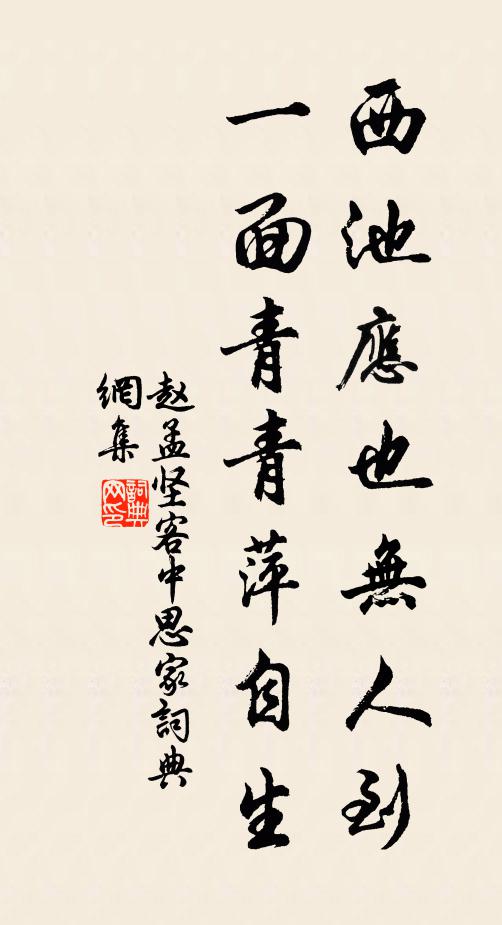 西池應也無人到
一面青青萍自生
赵孟坚客中思家詞典
網集
詞典
网印